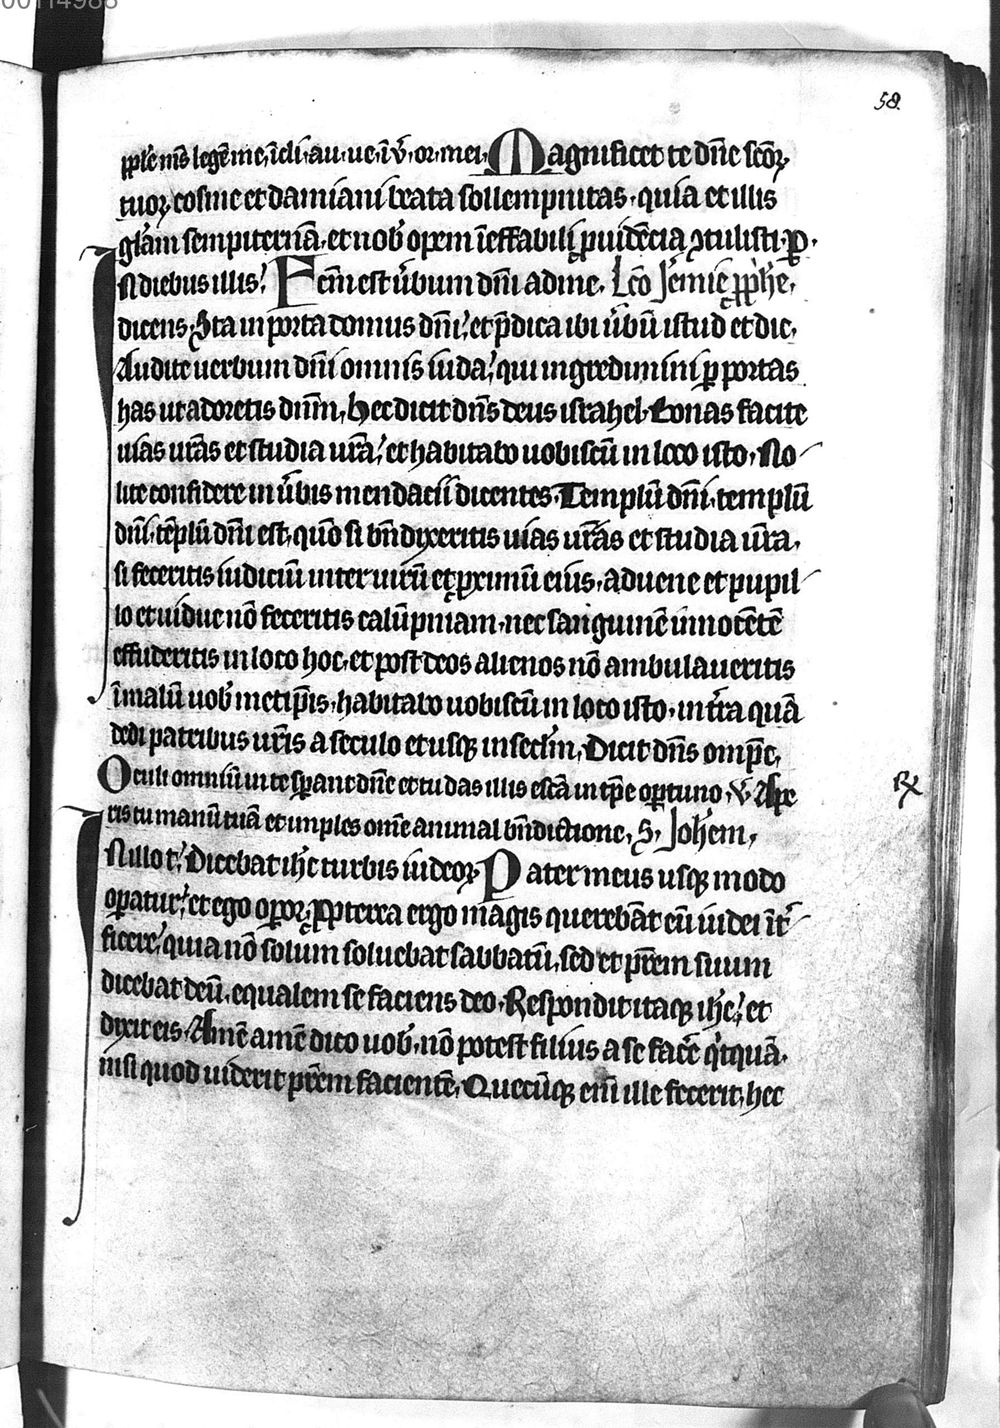 00114988
58.
pple ms̄ legē me, īcli· au· ue· ī v̄· or· mei· Magnificet te dn̄e scōꝝ
tuoꝝ cosme et damiani beata sollempnitas· quia et illis
gl̄am sempiternā· et nob̄ opem īeffabili ꝓuidēcia ꝯtulisti· ꝑ·
N diebus illis! Fcm̄ est ūbum dn̄i ad me· Lcō Jemie ꝓphe,
dicens· Sta in porta domus dn̄i! et p̄dica ibi ūbū istud et dic·
Audite uerbum dn̄i omnis iuda! qui ingredimini ꝑ portas
has ut adoretis dnm̄, hec dicit dn̄s deus israhel· Bonas facite
uias ur̄as et studia ur̄a! et habitabo uobiscū in loco isto· No-
lite confidere in ūbis mendacii dicentes· Templū dn̄i· templū
dn̄i· tēplū dn̄i est· quō si bn̄ dixeritis uias ur̄as et studia ur̄a·
si feceritis iudiciū inter uirū et ꝓximū eius· aduene et pupil-
lo et uidue nō feceritis calūpniam· nec sanguinē innocētē
effuderitis in loco hoc· et post deos alienos nō ambulaueritis
ī malū uob̄ metip̄is· habitabo uobiscū in loco isto· in tr̄a quā
dedi patribus ur̄is a seculo et usqꝫ in seclm̄, Dicit dn̄s omp̄c,
Oculi omniū in te sꝑant dn̄e et tu das illis escā in tp̄e oportuno ℣ Ape
℞
ris tu manū tuā et imples om̄e animal bn̄dictione, S· Johem̄,
N illo t! Dicebat ih̄c turbis iudeoꝝ Pater meus usqꝫ modo
oꝑatur! et ego oꝑor· ꝓpterea ergo magis querebāt eū iudei īt-
ficere! quia nō solum soluebat sabbatū· sed et pr̄em suum
dicebat deū· equalem se faciens deo· Respondit itaqꝫ ih̄c! et
dixit eis· Amē amē dico uob̄· nō potest filius a se facē q'tquā·
nisi quod uiderit pr̄em facientē· Quecūqꝫ eni̅ ille fecerit· hec